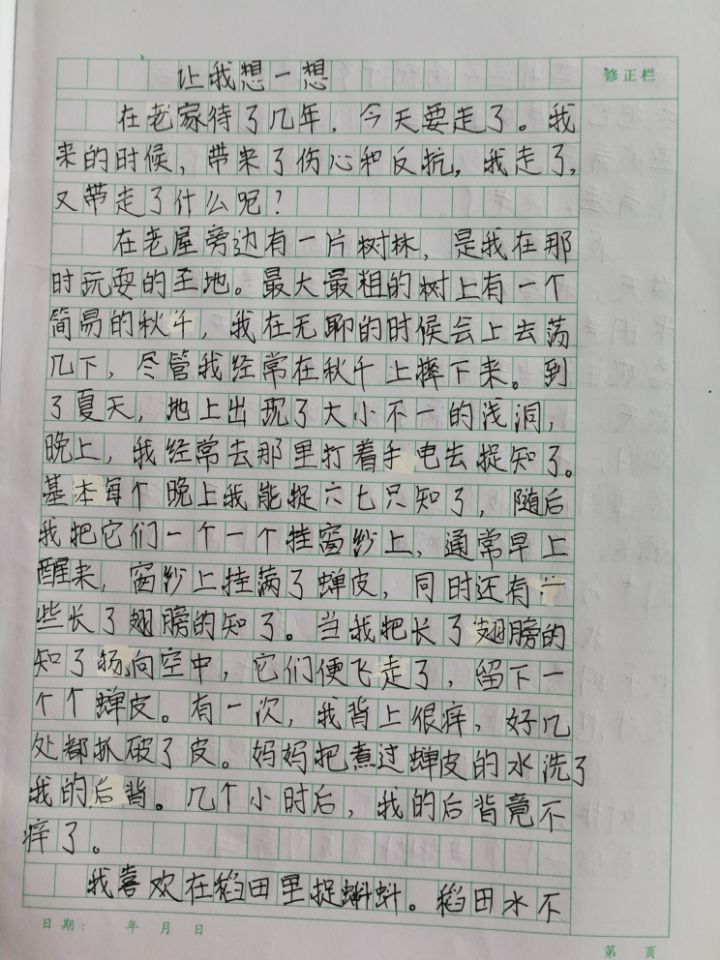 让我想一想
修正栏
在老家待了几年，今天要走了。我
来的时候，带来了伤心和反抗，我走了，
又带走了什么呢？
在老屋旁边有一片树林，是我在那
时玩耍的圣地。最大最粗的树上有一个
简易的秋千，我在无聊的时候会上去荡
几下，尽管我经常在秋千上摔下来。到
了夏天，地上出现了大小不一的浅洞，
晚上，我经常去那里打着手电去捉知了。
基本每个晚上我能捉六七只知了，随后
我把它们一个一个挂窗纱上，通常早上
醒来，窗纱上挂满了蝉皮，同时还有一
些长了翅膀的知了。当我把长了翅膀的
知了扬向空中，它们便飞走了，留下一
个个蝉皮。有一次，我背上很痒，好几
处都抓破了皮。妈妈把煮过蝉皮的水洗了
我的后背。几个小时后，我的后背竟不
痒了。
我喜欢在稻田里捉蝌蚪。稻田水不
日期： 年 月 日
第 页